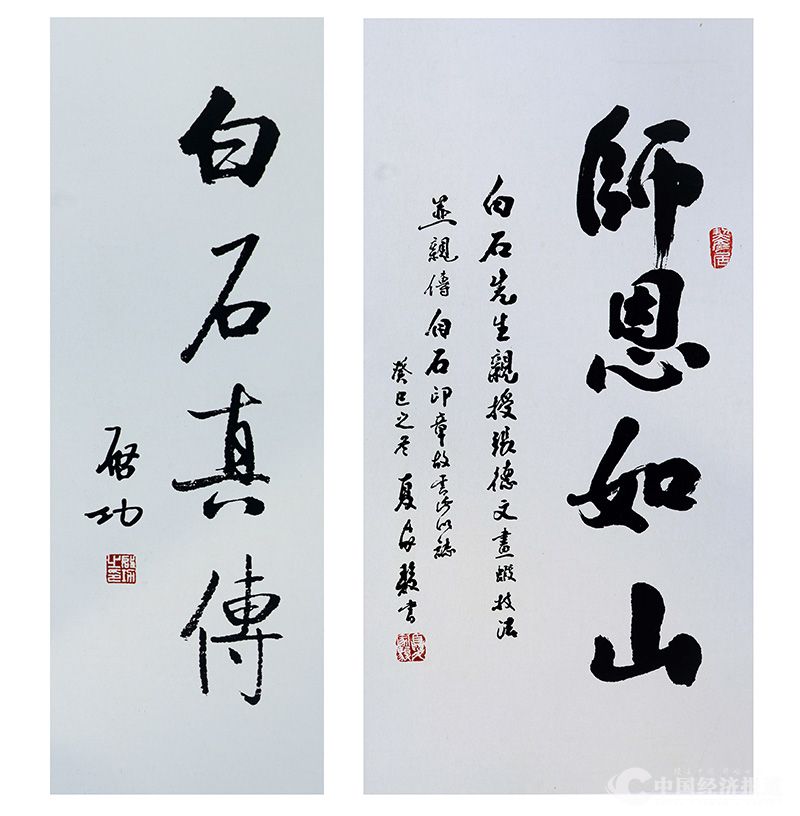 白石真傳
啓功
師恩如山
白石先生親授張德文畫蝦技法
並親傳白石印章故書此以誌
癸巳之冬 夏家骏書
中国经济报道